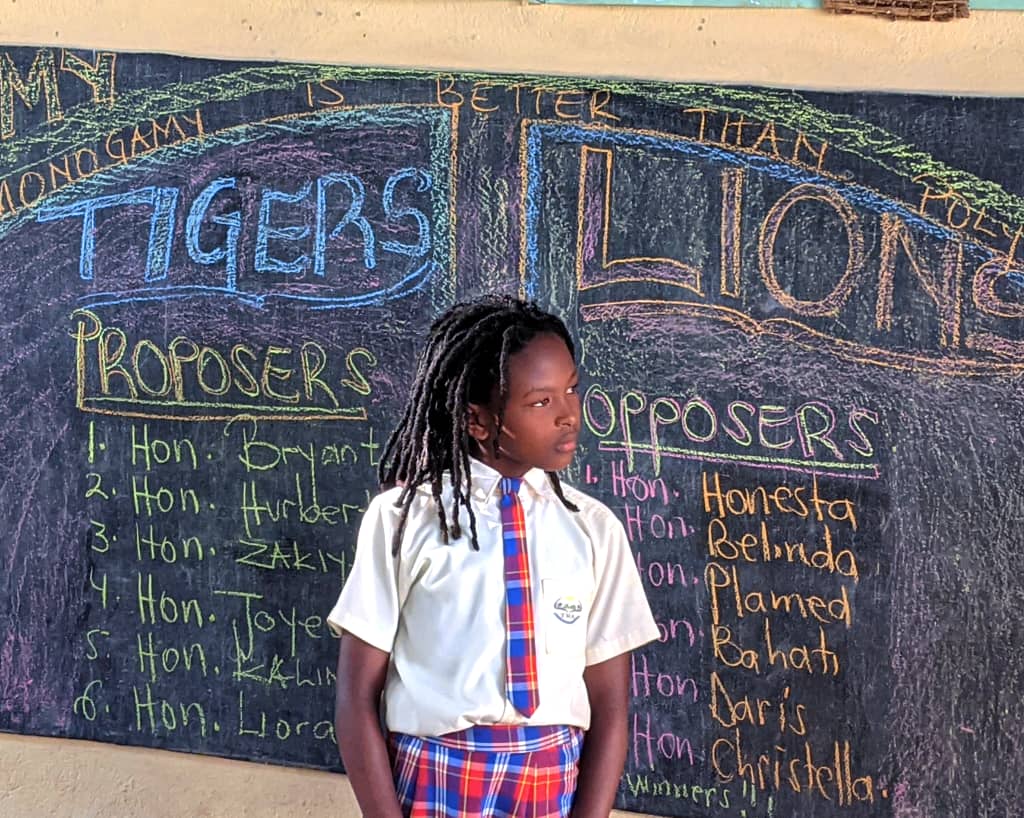 MY
MONOGAMY IS BETTER THAN POLY
TIGERS
LIONS
PROPOSERS
1. Hon. Bryant
2. Hon. Hurber
3. Hon. ZAKIY
4. Hon. Joye
5. Hon. KALIN
6. Hon. Liora
OPPOSERS
1. Hon. Honesta
Hon. Belinda
Hon. Plamed
on. Bahati
Hon Daris
Hon Christella.
Winners!!!